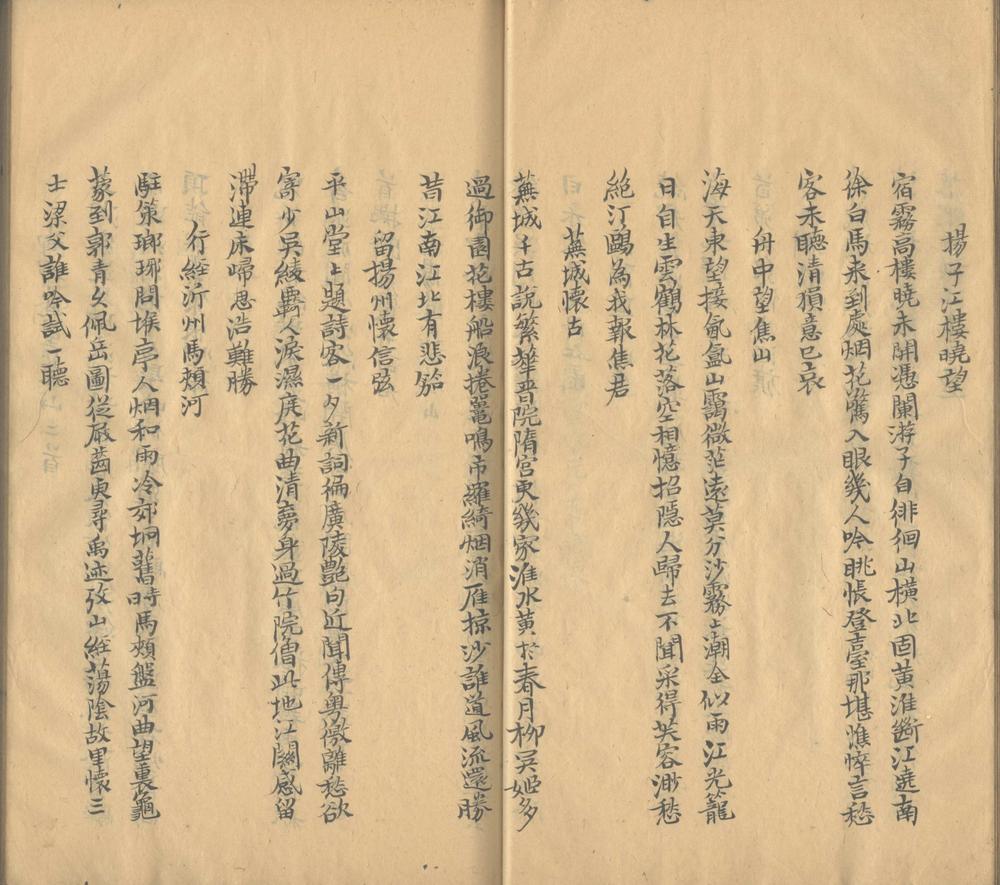 揚子江樓曉望
宿霧高樓曉未開憑闌游子自徘徊山橫北固黃淮斷江遶南
徐白馬来到處烟花驚入眼幾人吟眺悵登臺那堪憔悴言愁
客未聽清猿意已哀
舟中望焦山
海天東望接氤氳山靄微茫遠莫分沙霧上潮全似雨江光籠
日自生雲鶴林花落空相憶招隱人歸去不聞采得芙容渺愁
絕汀鷗為我報焦君
蕪城懷古
蕪城千古說繁華晉院隋宮更幾家淮水黃於春月柳吳姬多
過御園花樓船浪捲鼉鳴市羅綺烟消雁掠沙誰道風流還勝
昔江南江北有悲笳
留揚州懷信弦
平山堂上題詩客一夕新詞徧廣陵艷句近聞傳粵徼離愁欲
寄少吳綾覊人淚濕庭花曲清夢身過竹院僧此地江關感留
滯連床歸思浩難勝
行經沂州馬頰河
駐策瑯琊問堠亭人烟和雨冷郊坰舊時馬頰盤河曲望裏龜
蒙到郭青久佩岳圖從嚴齒更尋禹迹攷山經蕩陰故里懷三
士梁父誰吟試一聽